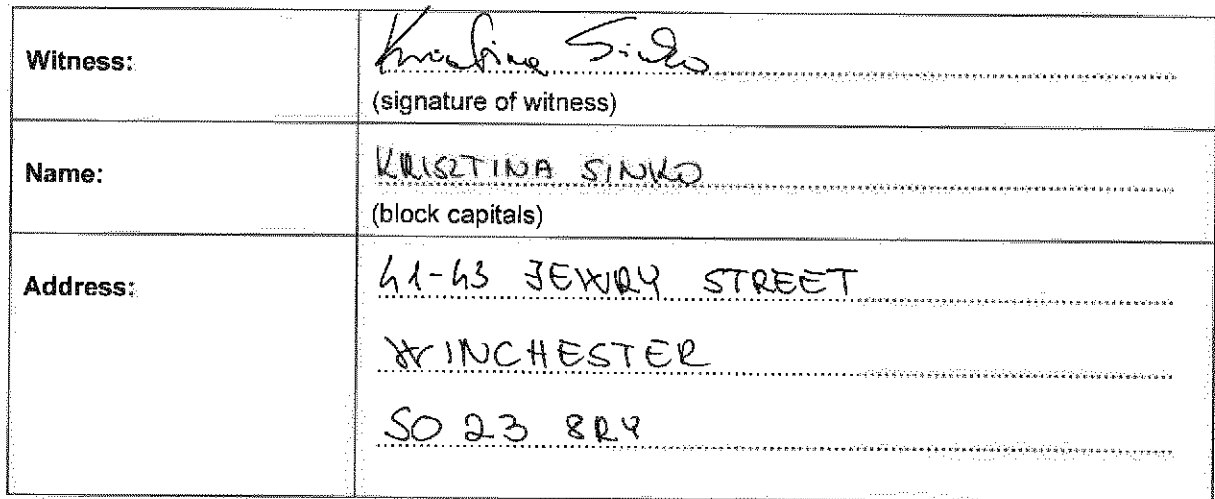 Witness:
Krisztina Sinko
(signature of witness)
Name:
KRISZTINA SINKO
(block capitals)
Address:
41-43 JEWRY STREET
WINCHESTER
SO23 8RY